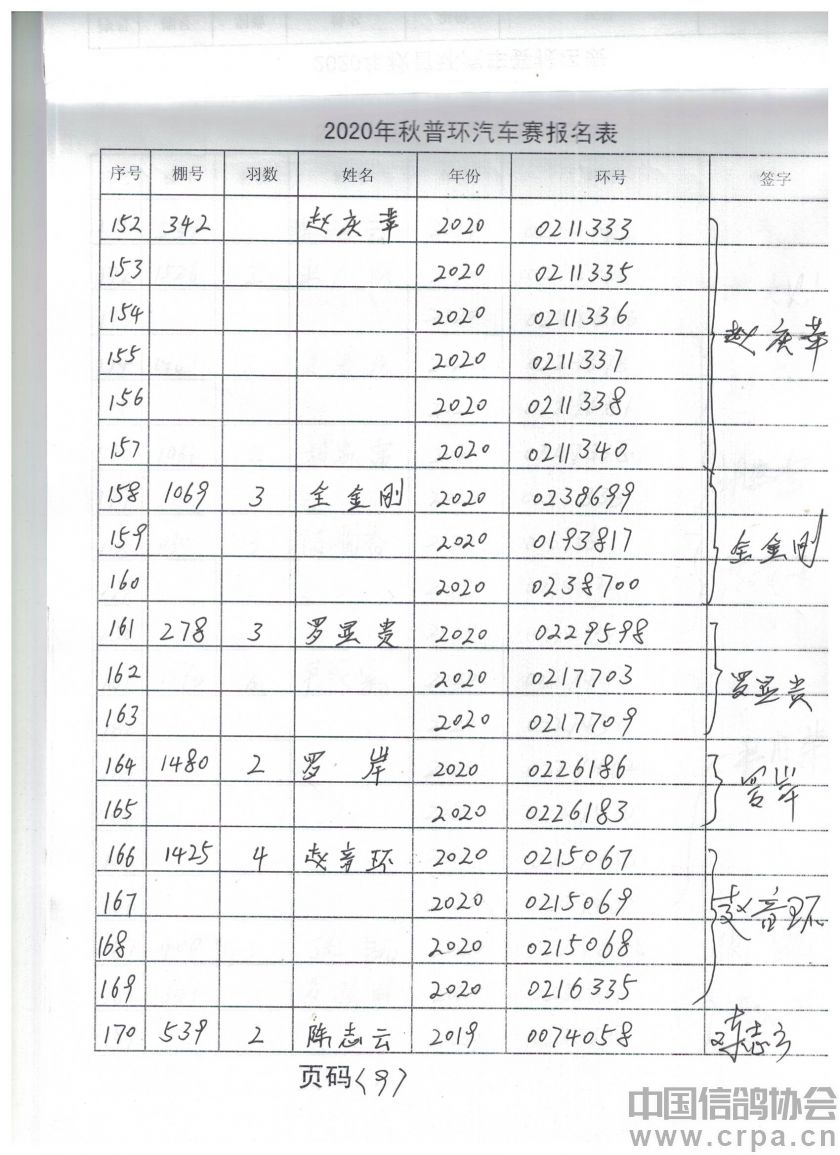 2020年秋普环汽车赛报名表
序号 棚号 羽数 姓名 年份 环号 签字
152 342 赵庆苹 2020 0211333
153 2020 0211335
154 2020 0211336
赵庆苹
155 2020 0211337
156 2020 0211338
157 2020 0211340
158 1069 3 全金刚 2020 0238699
159 2020 0193817 全金刚
160 2020 0238700
161 278 3 罗显贵 2020 0229598
162 2020 0217703 罗显贵
163 2020 0217709
164 1480 2 罗岸 2020 0226186 罗岸
165 2020 0226183
166 1425 4 赵音环 2020 0215067
167 2020 0215069 赵音环
168 2020 0215068
169 2020 0216335
170 539 2 陈志云 2019 0074058 陈志云
页码(9)
中国信鸽协会
www.crpa.cn